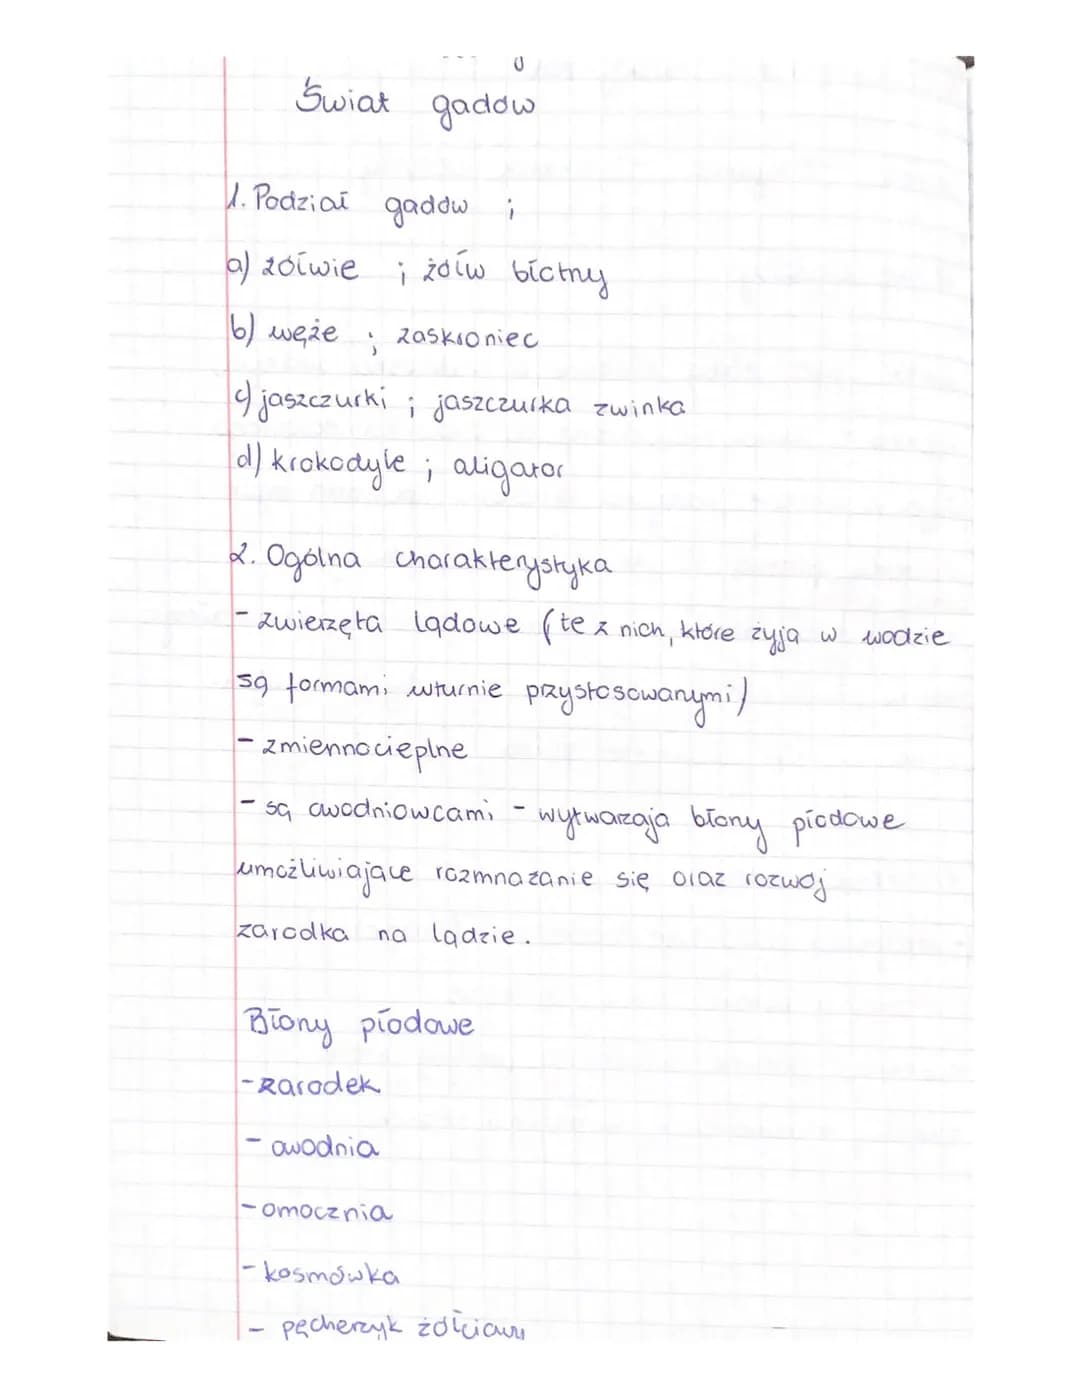 Świat gadów
1. Podział gadów ;
a) żółwie ; żółw błotny
b) węże ; zaskroniec
c) jaszczurki ; jaszczurka zwinka
d) krokodyle ; aligator
2. Ogólna charakterystyka
- zwierzęta lądowe (te z nich, które żyją w wodzie
są formami wtórnie przystosowanymi)
- zmiennocieplne
- są owodniowcami - wytwarzaja błony płodowe
umożliwiające rozmnażanie się oraz rozwój
zarodka na lądzie.
Błony płodowe
- zarodek
- owodnia
- omocznia
- kosmówka
- pęcherzyk żółciowy